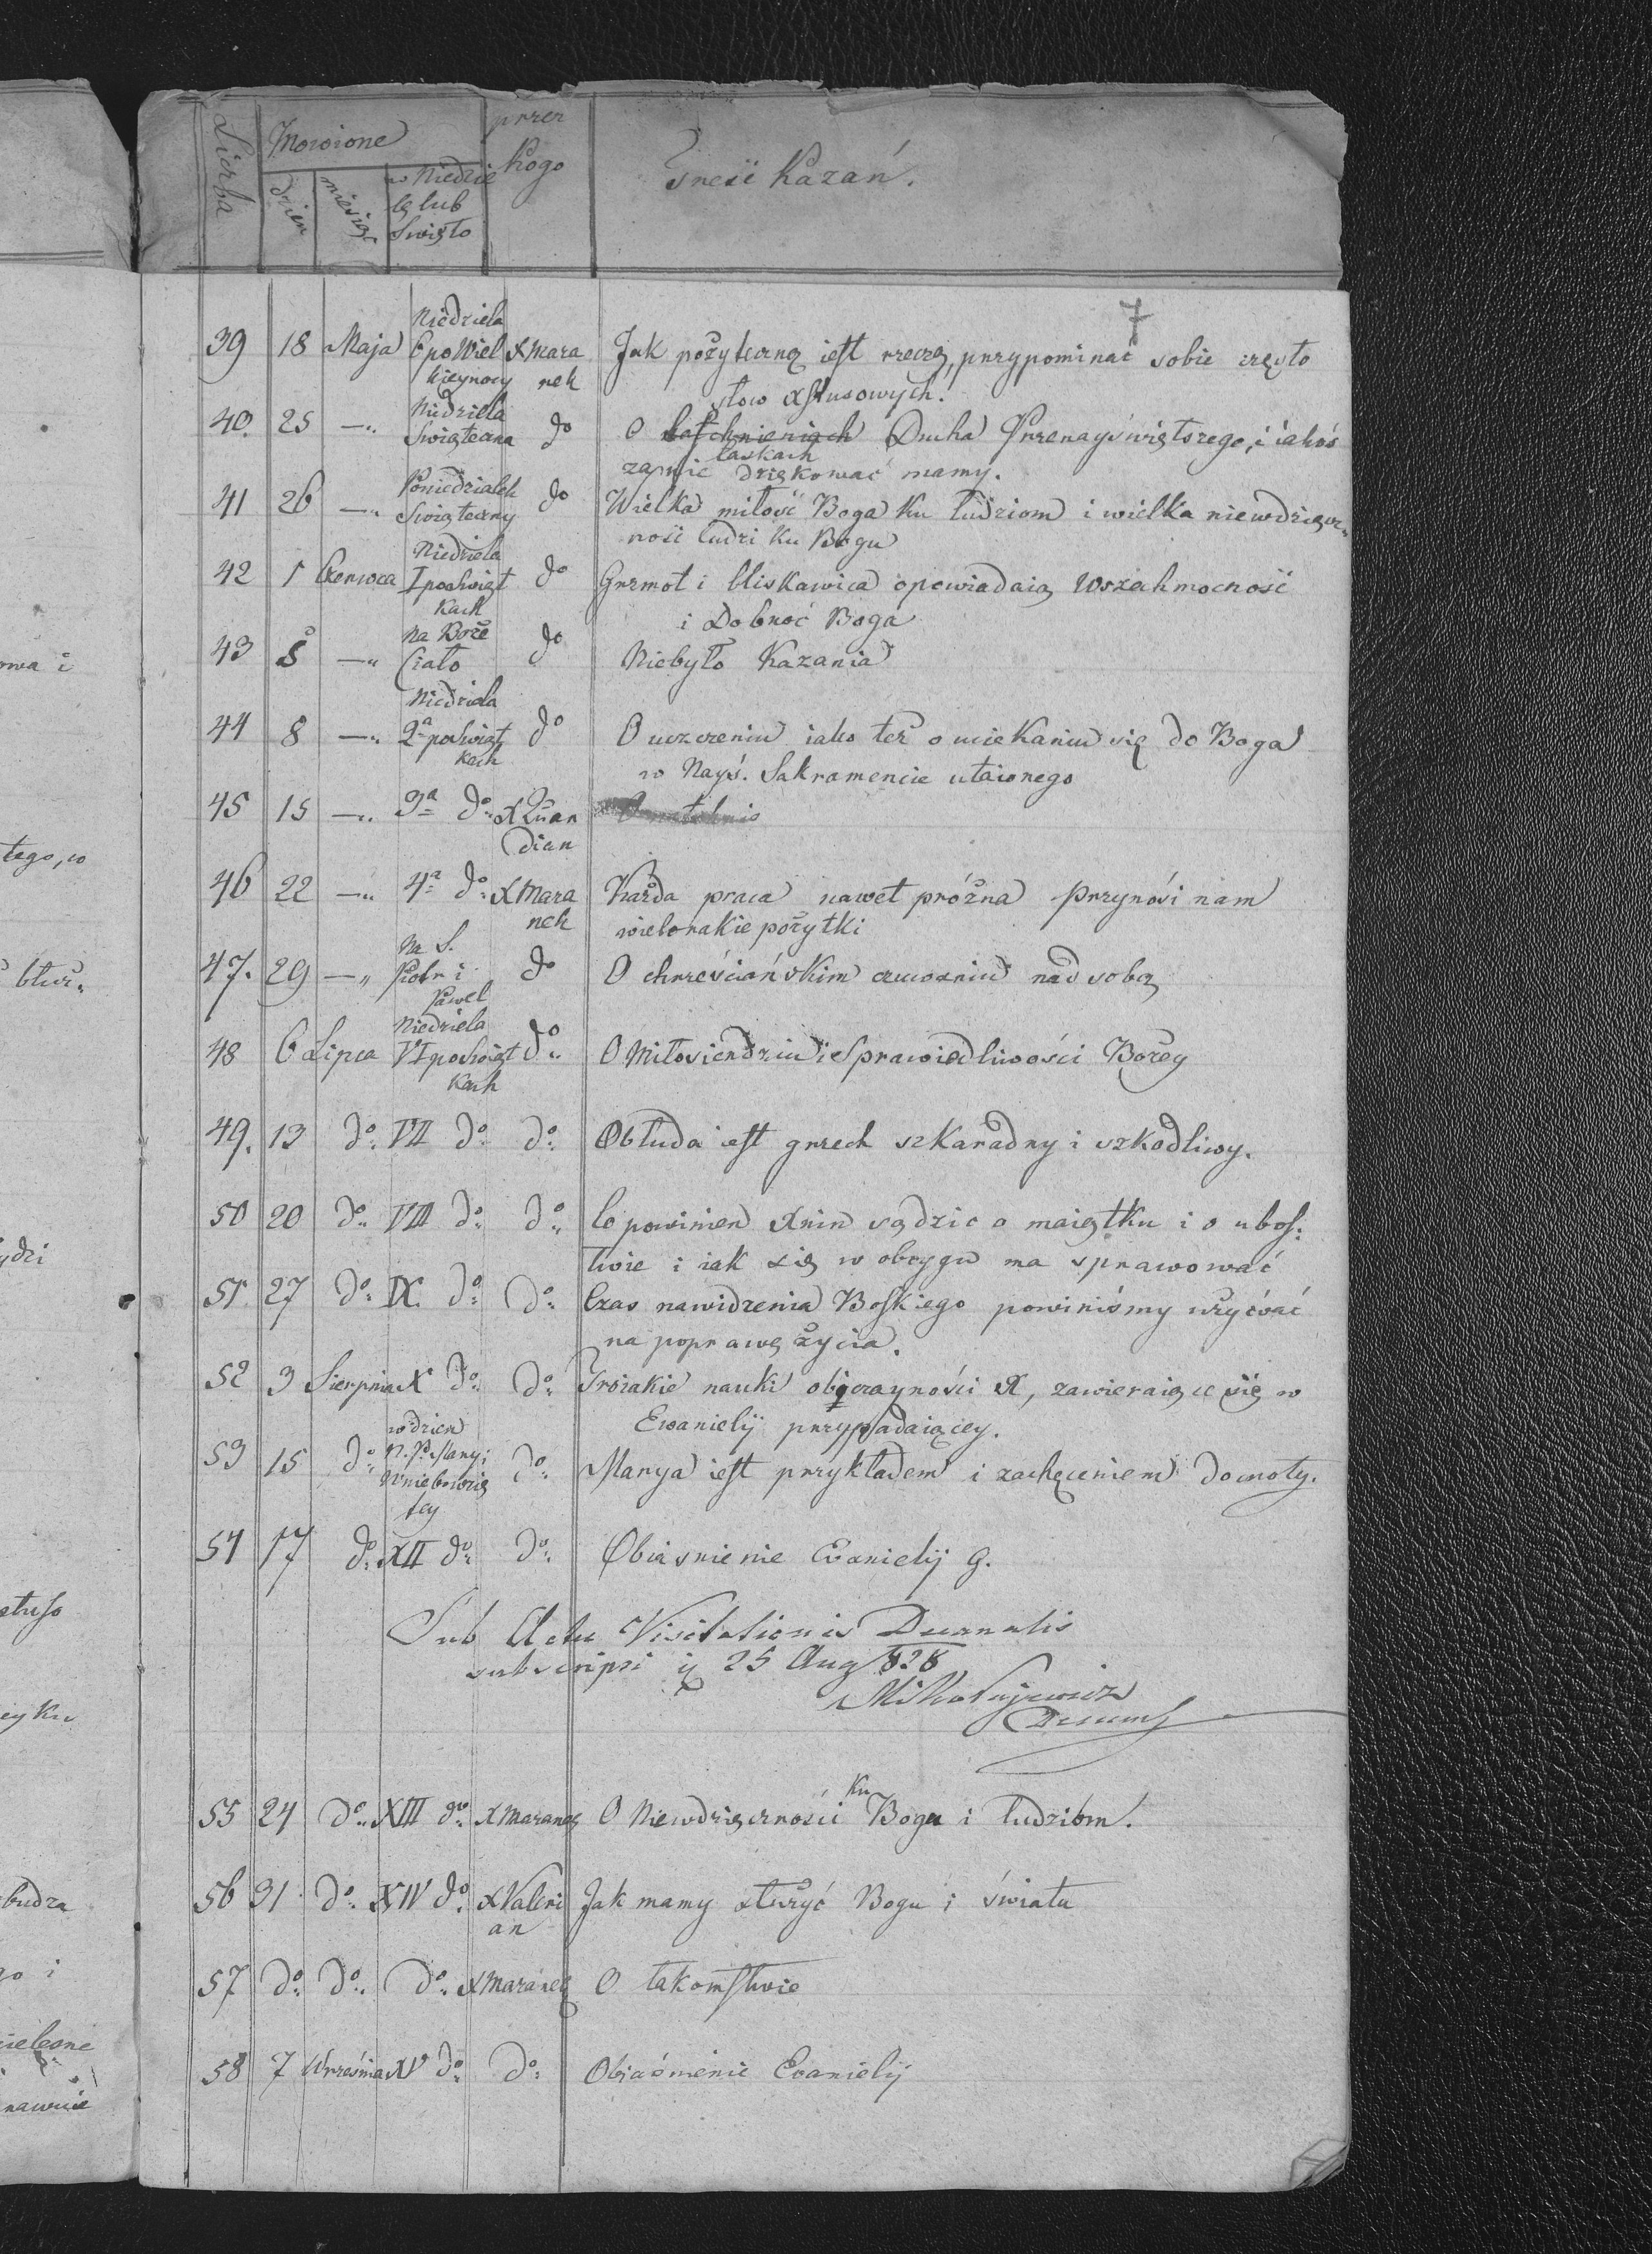 7
Liczba Mowione przez kogo Treść Kazań.
dzien miesiąc w Niedzie
lę lub
Swięto
39 18 Maja Niedziela 6 po Wiel kieynocy X Mara nek Jak pożyteczną iest rzeczą, przypominać sobie często
słow Xstusowych.
40. 25 —„ Niedziela Swiąteczna do O Ducha Przenayświętszego, i iakoś
łaskach
za nie dziękować mamy.
41 26 —„ Poniedziałek Swiąteczny do Wielka miłość Boga ku ludziom i wielka niewdzięcz„
ność ludzi ku Bogu
42 1 Czerwca Niedziela I po Swiąt kach do Grzmot i bliskawica opowiadaią Wszechmocność
i Dobroć Boga
43 5 —„ Na Boże Ciało do Niebyło Kazania
44 8 —„ Niedziela 2a po Swiąt kach do O uczczeniu iako też o uciekaniu się do Boga
w Nayś. Sakramencie utaionego
45 15 —„ 3a do X Quar dian
46 22 —„ 4a do X Mara nek Każda praca nawet próżna przynosi nam
wielorakie pożytki
47. 29 —„ Na S. Piotr i Paweł do O chrześciańskim czuwaniu nad sobą
48 6 Lipca Niedziela VI po Swiąt kach do O Miłosierdziu i Sprawiedliwości Bożey
49. 13 do VII do do Obłuda iest grzech szkaradny i szkodliwy.
50 20 do VIII do do Co powinien Xnin sądzic o maiątku i o ubos:
twie i iak się w obcygu ma sprawować
51 27 do IX do do Czas nawidzenia Boskiego powiniśmy użyćwać
na poprawę życia.
52 3 Sierpnia X do do Trojakie nauki obiczayności X, zawieraiące się w
Ewanielij przypadaiącey.
53 15 do w dzien N. P. Maryi Wniebowzię tey do Marya iest przykładem i zachęceniem do cnoty.
54 17 do XII do do Obiasnienie Ewanielij g.
Sub Actu Visitationis Decanalis
subscripsi 25 Aug 828
Mikołajewicz
55 24 do XIII do X Maranek O Niewdzięczności ku Bogu i ludziom.
56 31 do XIV do X Valeri an Jak mamy służyć Bogu i światu
57 do do do X Maranek O łakomstwie
58 7 Września XV do do Obiaśnienie Ewanielij